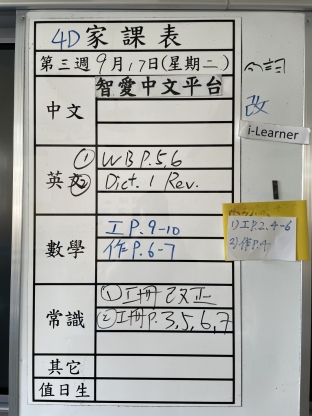 4D 家課表
第三週 9月17日(星期二)
智愛中文平台
中文
改
i-Learner
① WB P.5,6
英文
② Dict. 1 Rev.
1) 工P.2,4-6
2) 作P.4
工P.9-10
數學
作P.6-7
① 工冊改正
常識
② 工冊P.3,5,6,7
其它
值日生